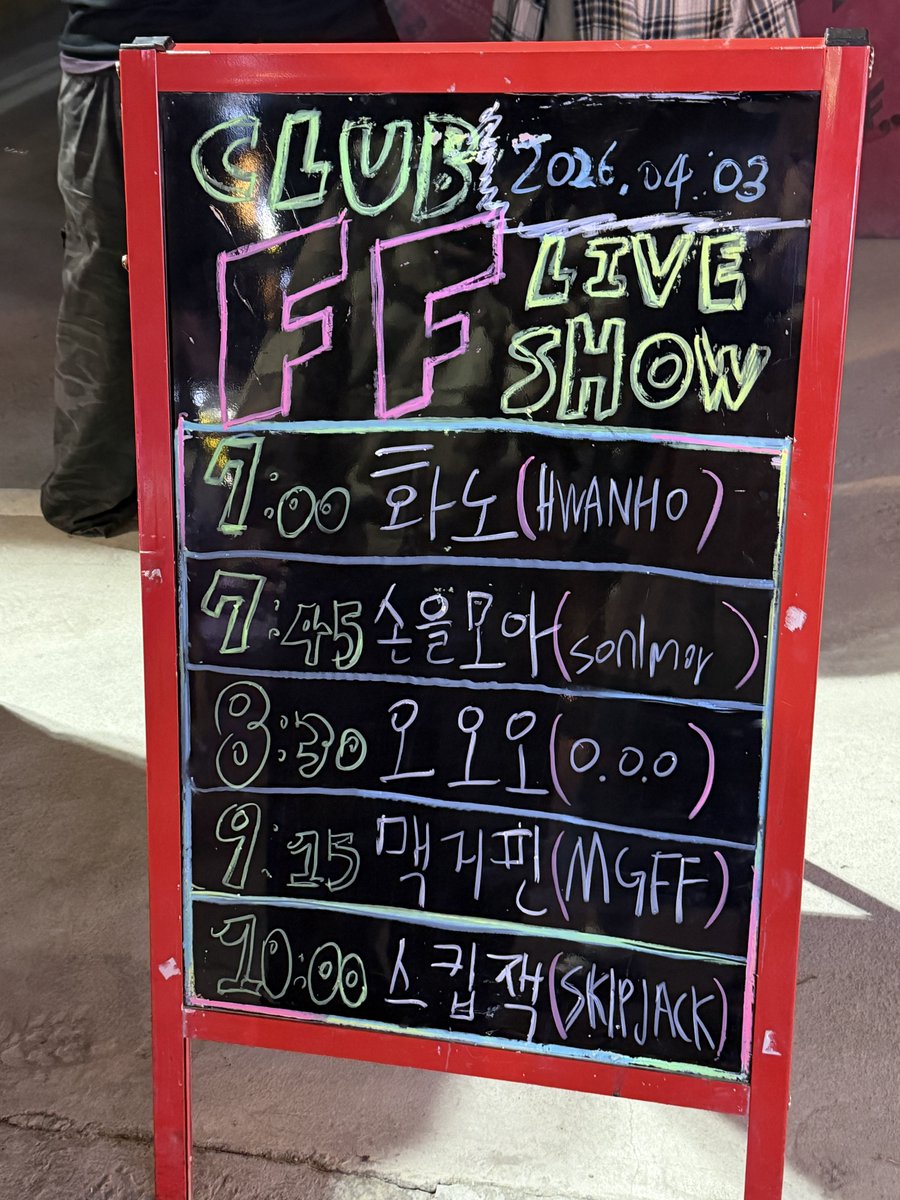 CLUB 2026.04.03
FF LIVE
SHOW
7:00 화노(HWANHO)
7:45 손을모아(sonlmor)
8:30 오오오(O.O.O)
9:15 맥거핀(MGFF)
10:00 스킵잭(SKIPJACK)